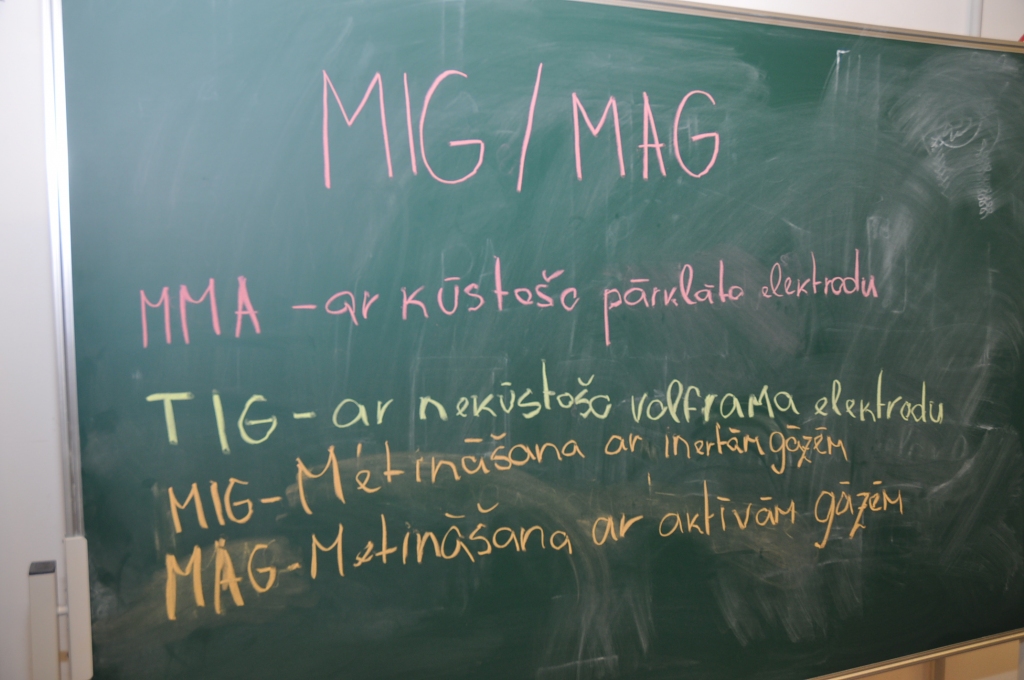 MIG/MAG
MMA - ar kūstošo pārklāto elektrodu
TIG - ar nekūstošo volframa elektrodu
MIG - Metināšana ar inertām gāzēm
MAG - Metināšana ar aktīvām gāzēm